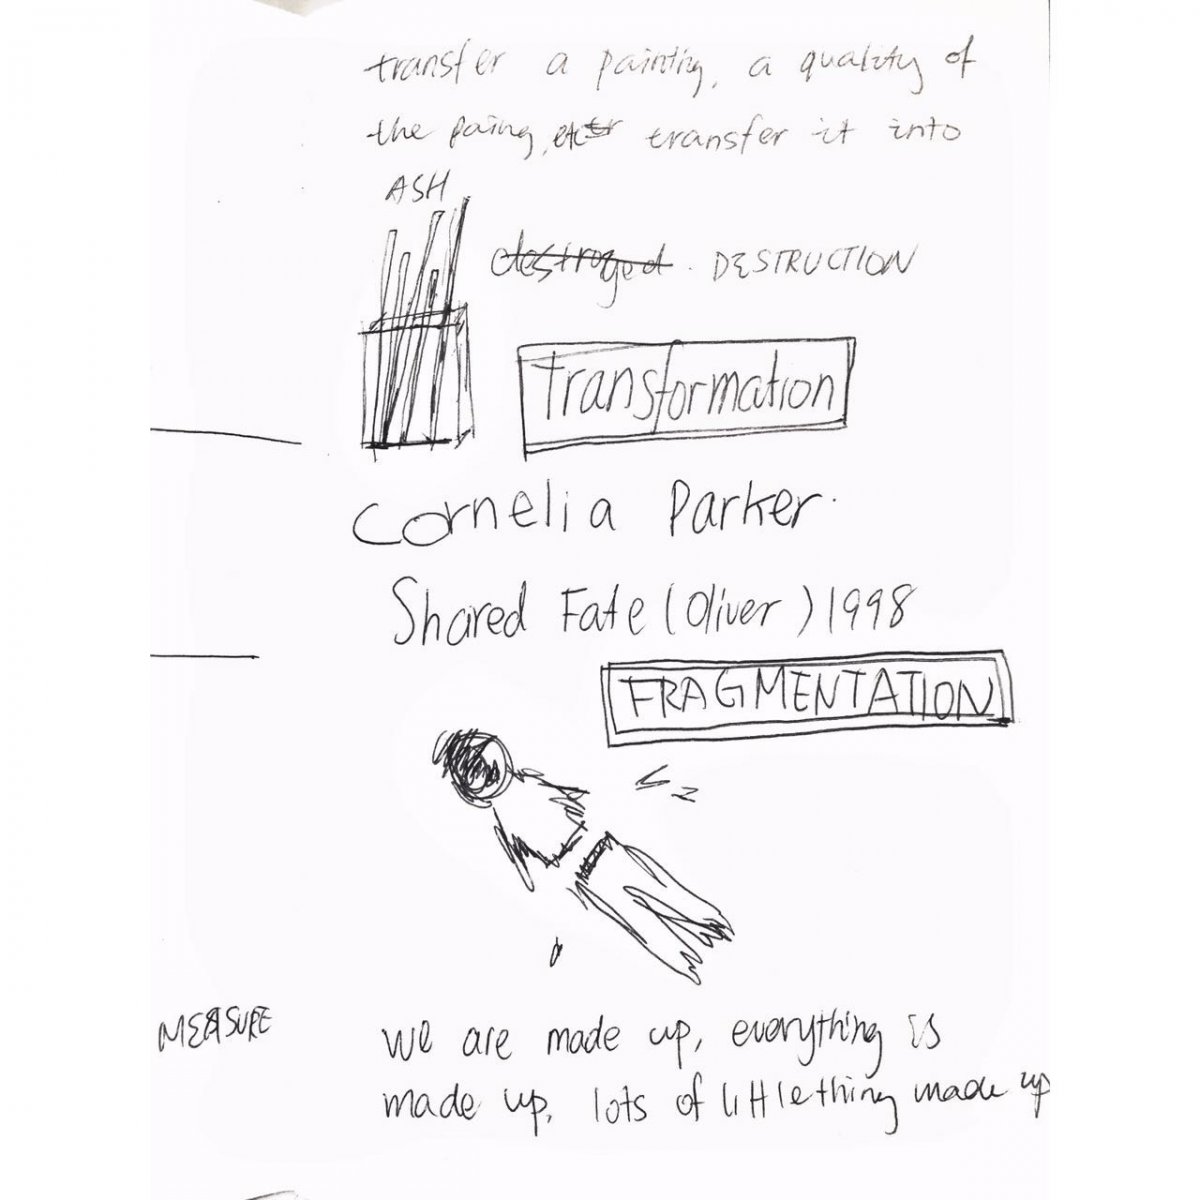 transfer a painting, a quality of
the paing, etc transfer it into
ASH
destroyed. DESTRUCTION
Transformation
Cornelia Parker.
Shared Fate (Oliver) 1998
FRAGMENTATION
MEASURE
we are made up, everything is
made up, lots of little thing made up